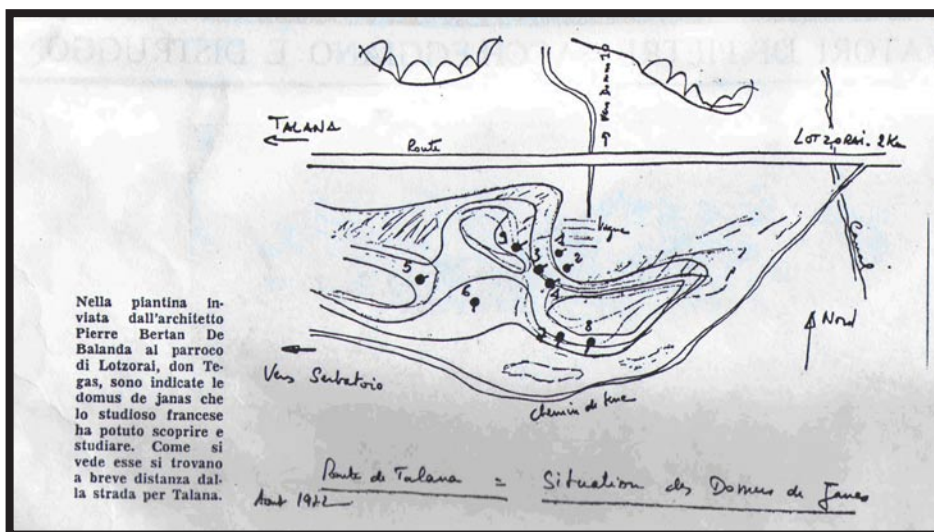 TALANA
Route
LOTZORAI. 2 Km
Vigne
3
2
3
4
5
6
7
8
Nord
Vers Serbatoio
Chemin de
Nella piantina in-
viata dall'architetto
Pierre Bertan De
Balanda al parroco
di Lotzorai, don Te-
gas, sono indicate le
domus de janas che
lo studioso francese
ha potuto scoprire e
studiare. Come si
vede esse si trovano
a breve distanza dal-
la strada per Talana.
Route de Talana = Situation des Domus de Janas
Aout 1972